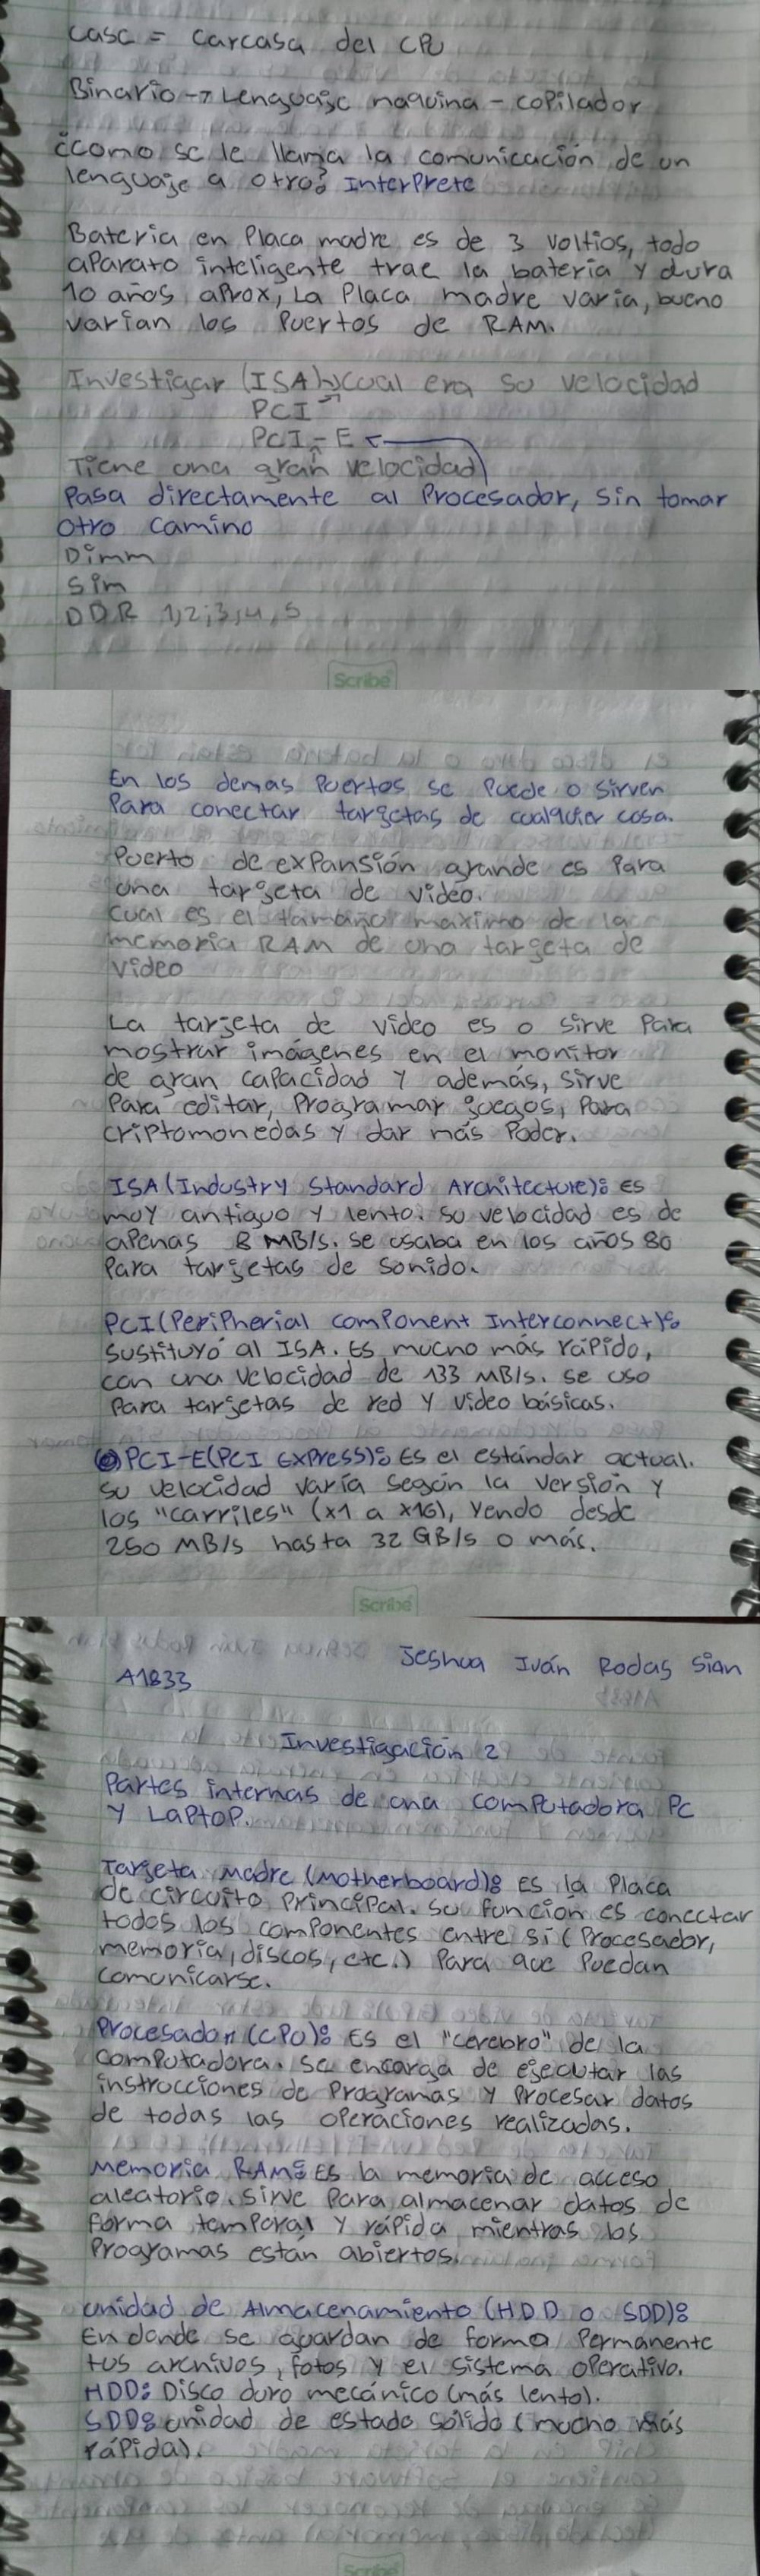 case = carcasa del CPU
Binario → Lenguaje maquina - copilador
¿como se le llama la comunicación de un
lenguaje a otro? Interprete
Bateria en Placa madre es de 3 voltios, todo
aparato inteligente trae la bateria y dura
10 años aprox, La Placa madre varia, bueno
varian los Puertos de RAM.
Investigar (ISA) cual era su velocidad
PCI
PCI-E
Tiene una gran velocidad
Pasa directamente al Procesador, sin tomar
otro camino
Dimm
Sim
DDR 1,2,3,4,5
Scribe
En los demas Puertos se Puede o sirven
Para conectar targetas de cualquier cosa.
Puerto de expansión grande es Para
una targeta de video.
cual es el tamaño maximo de la
memoria RAM de una targeta de
video
La tarjeta de video es o sirve Para
mostrar imágenes en el monitor
de gran capacidad y además, sirve
Para editar, Programar juegos, Para
criptomonedas y dar más Poder.
ISA (Industry Standard Architecture): Es
muy antiguo y lento. su velocidad es de
apenas 8 MB/s. se usaba en los años 80
Para tarjetas de sonido.
PCI (Peripherial component Interconnect):
sustituyó al ISA. Es mucho más rápido,
con una velocidad de 133 MB/s. se uso
Para tarjetas de red y video básicas.
PCI-E (PCI Express): Es el estándar actual.
su velocidad varía según la versión y
los "carriles" (x1 a x16), yendo desde
250 MB/s hasta 32 GB/s o más.
Scribe
Jeshua Iván Rodas Sian
A1833
Investigación 2
Partes internas de una computadora PC
y Laptop.
Tarjeta Madre (Motherboard): Es la Placa
de circuito Principal. su función es conectar
todos los componentes entre sí (Procesador,
memoria, discos, etc.) Para que Puedan
comunicarse.
Procesador (CPU): Es el "cerebro" de la
computadora. se encarga de ejecutar las
instrucciones de Programas y Procesar datos
de todas las operaciones realizadas.
Memoria RAM: Es la memoria de acceso
aleatorio. sirve Para almacenar datos de
forma temporal y rápida mientras los
Programas están abiertos.
unidad de Almacenamiento (HDD o SDD):
En donde se guardan de forma Permanente
tus archivos, fotos y el sistema operativo.
HDD: Disco duro mecánico (más lento).
SDD: unidad de estado sólido (mucho más
rápida).
Scribe